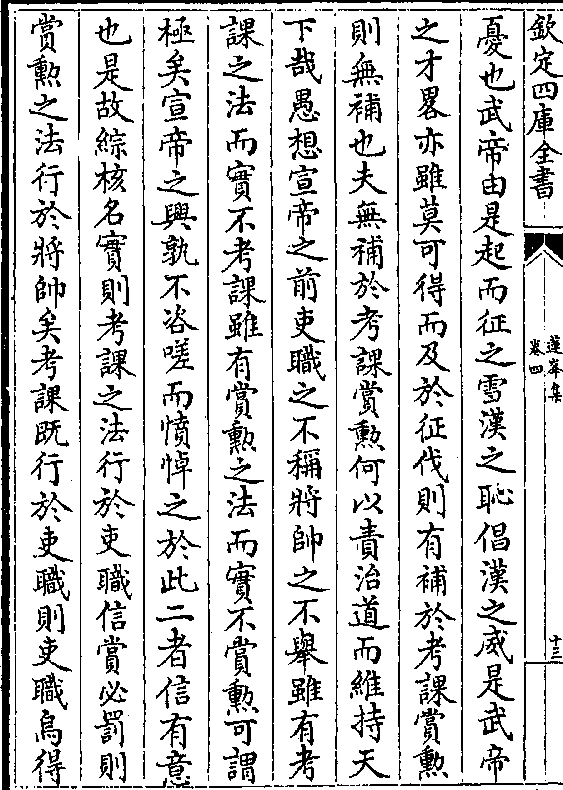 欽定四庫全書
蓮峯集
卷四
十三
憂也武帝由是起而征之雪漢之恥倡漢之威是武帝
之才畧亦雖莫可得而及於征伐則有補於考課賞勲
則無補也夫無補於考課賞勲何以責治道而維持天
下哉愚想宣帝之前吏職之不稱將帥之不舉雖有考
課之法而實不考課雖有賞勲之法而實不賞勲可謂
極矣宣帝之興孰不咨嗟而憤悼之於此二者信有意
也是故綜核名實則考課之法行於吏職信賞必罰則
賞勲之法行於將帥矣考課既行於吏職則吏職烏得